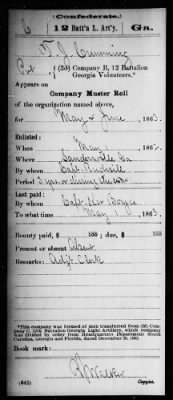 (Confederate.)
C 12 Batt'n L. Art'y. Ga.
T. J. Cumming
Pvt, (3d) Company B, 12 Battalion
Georgia Volunteers.*
Appears on
Company Muster Roll
of the organization named above,
for May & June, 1863.
Enlisted:
When May 1
Where Sandersville Ga
By whom Capt. Rudisill
Period 3 years or during the war
Last paid:
By whom Capt.
To what time May 1, 1863.
Bounty paid $ 100; due $ 100
Present or absent Absent
Remarks: Adjt. Clerk
*This company was formed of men transferred from (2d) Company C, 12th Battalion Georgia Light Artillery, which company was divided by order from Headquarters Department South Carolina, Georgia and Florida, dated December 20, 1862.
Book mark:
(642) Copyist.